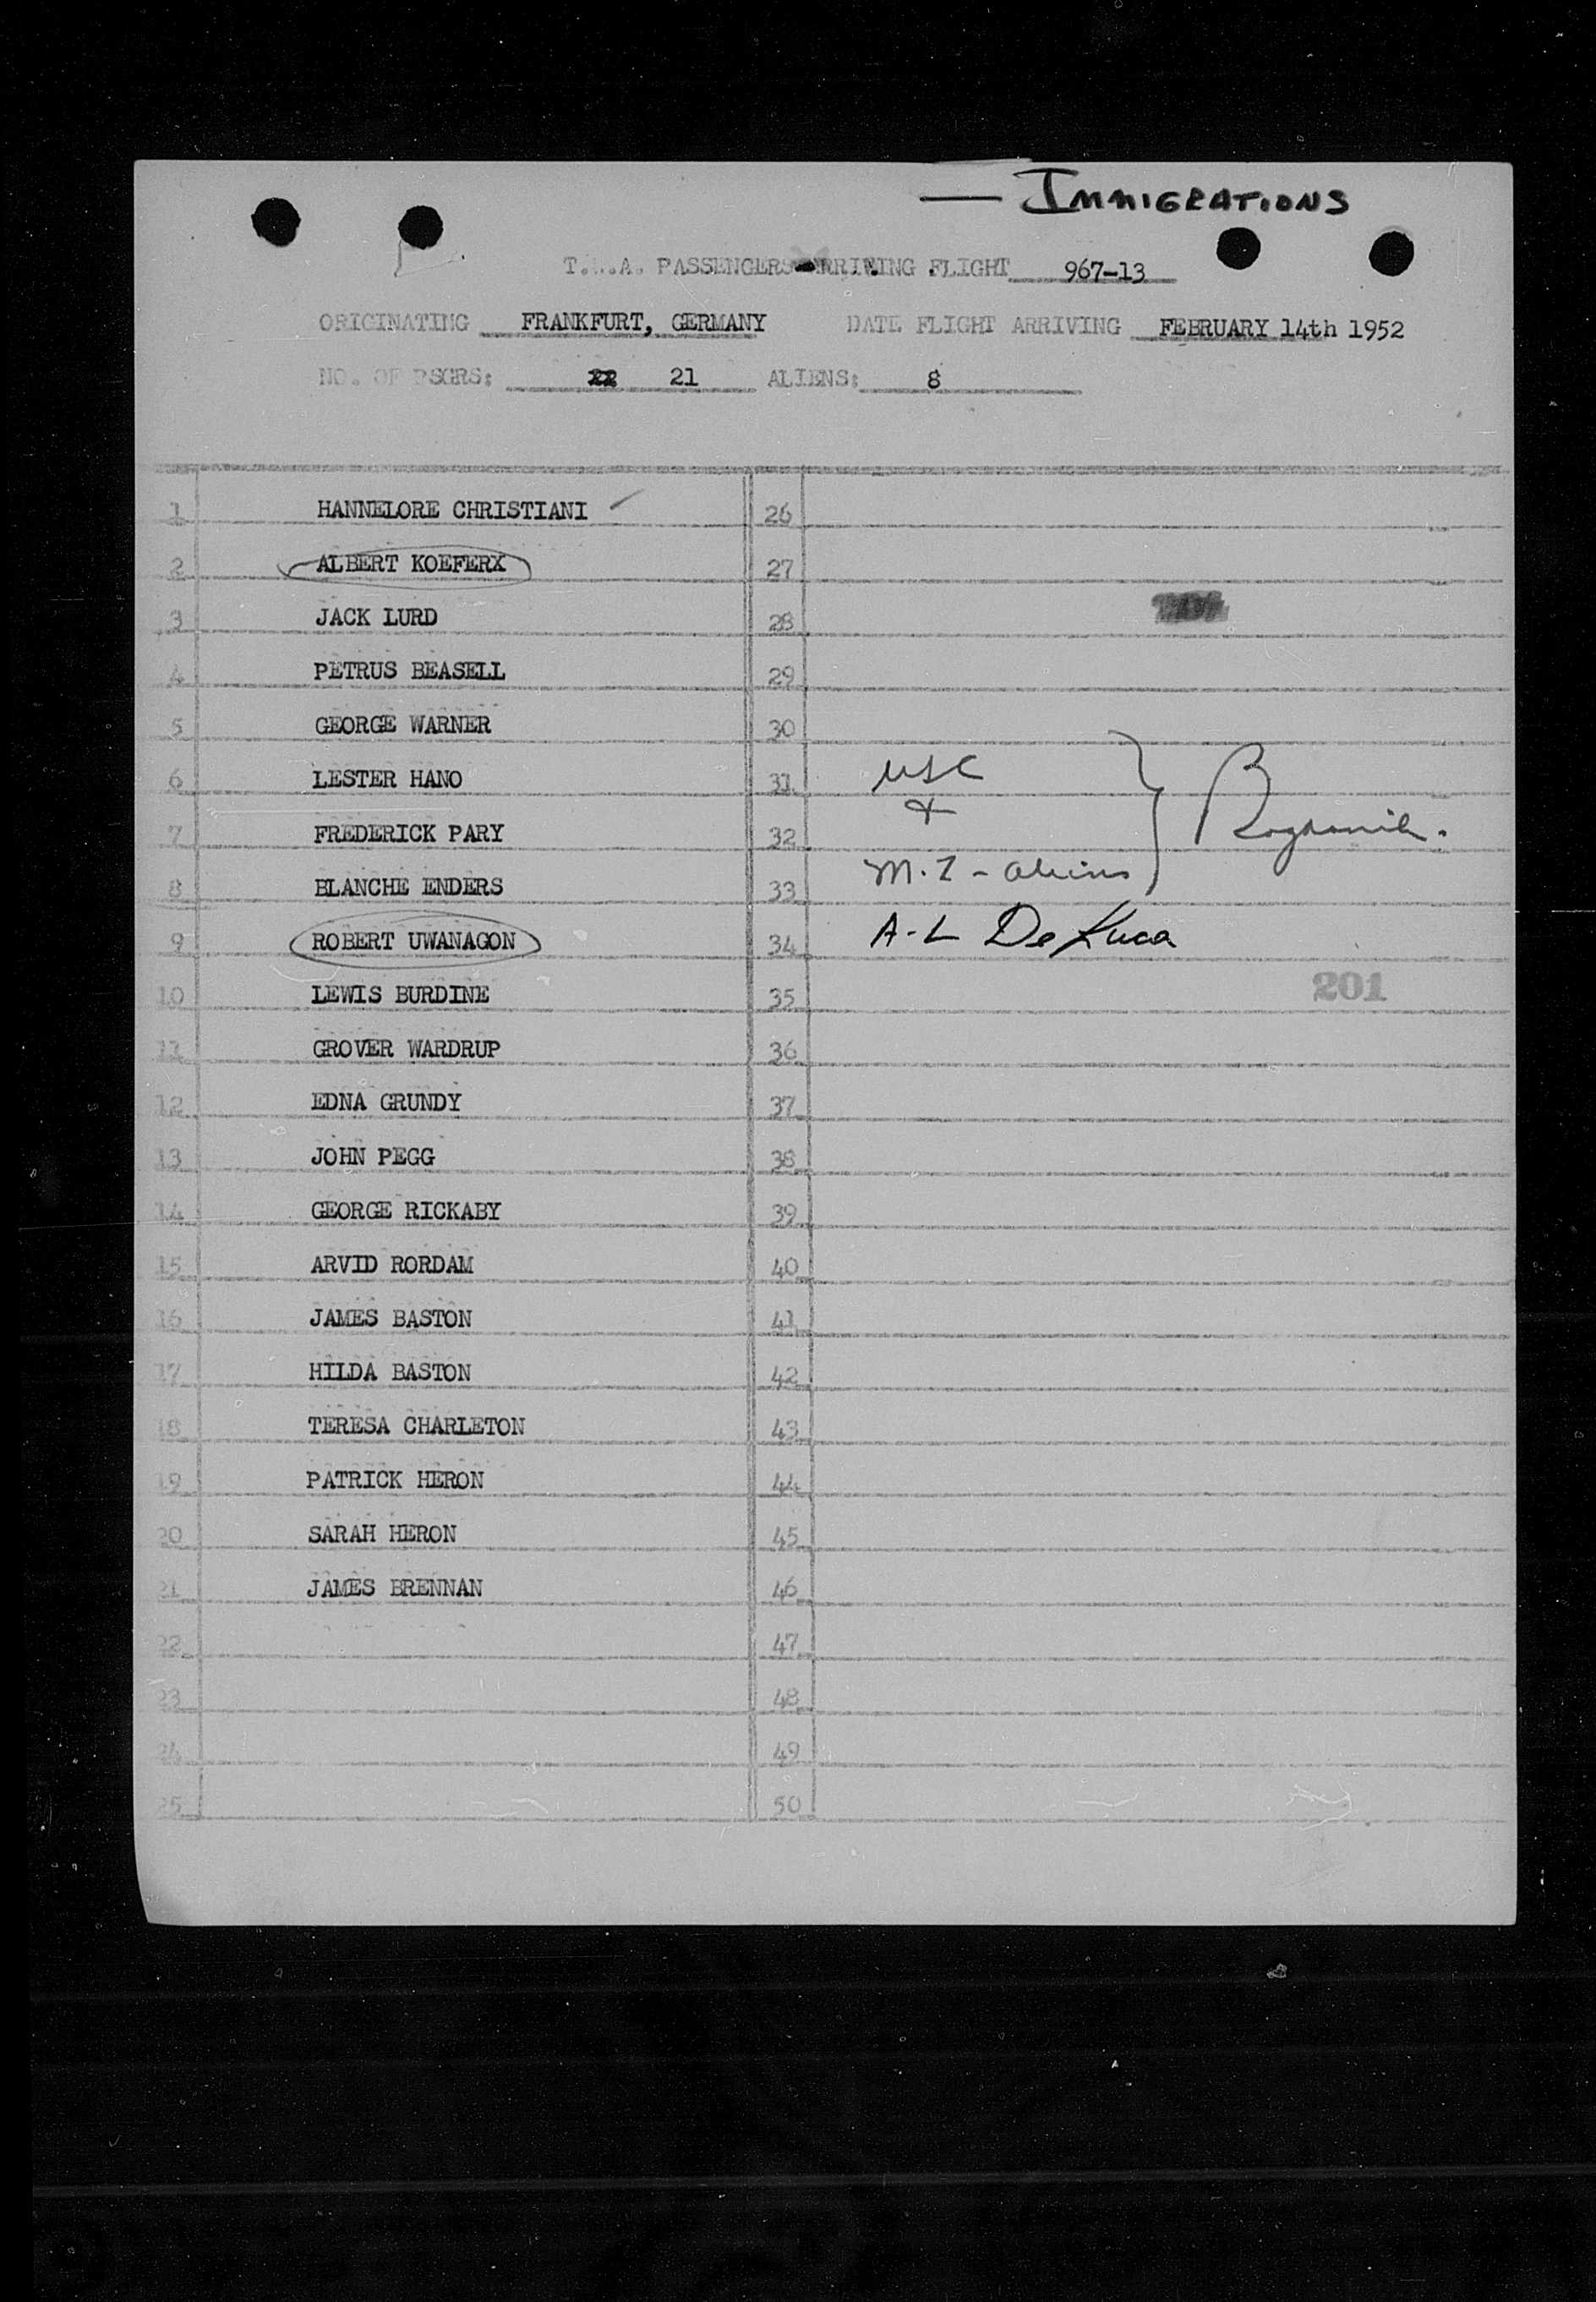 — IMMIGRATIONS
T.W.A. PASSENGERS ARRIVING FLIGHT 967-13
ORIGINATING FRANKFURT, GERMANY DATE FLIGHT ARRIVING FEBRUARY 14th 1952
NO. OF PSGRS: 22 21 ALIENS: 8
1 HANNELORE CHRISTIANI 26
2 ALBERT KOEFERX 27
3 JACK LURD 28
4 PETRUS BEASELL 29
5 GEORGE WARNER 30
6 LESTER HANO 31 USC
7 FREDERICK PARY 32 +
8 BLANCHE ENDERS 33 M.I - Aliens
9 ROBERT UWANAGON 34 A-L De Luca
10 LEWIS BURDINE 35 201
11 GROVER WARDRUP 36
12 EDNA GRUNDY 37
13 JOHN PEGG 38
14 GEORGE RICKABY 39
15 ARVID RORDAM 40
16 JAMES BASTON 41
17 HILDA BASTON 42
18 TERESA CHARLETON 43
19 PATRICK HERON 44
20 SARAH HERON 45
21 JAMES BRENNAN 46
22 47
23 48
24 49
25 50